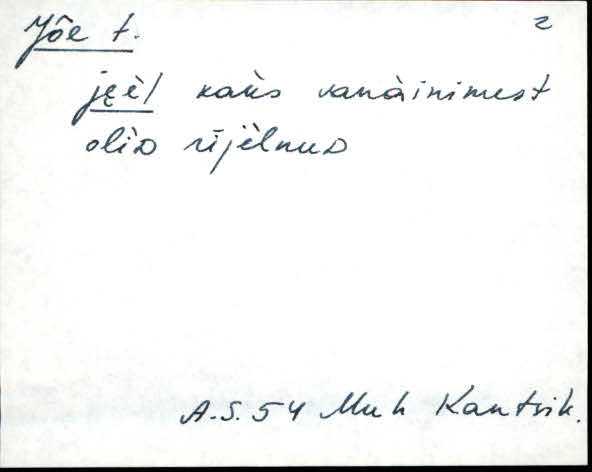 Jõe t. 2
jẹèl kaks vanàinimest
olìD rījèlnuD
A.S. 54 Muh Kantsik.